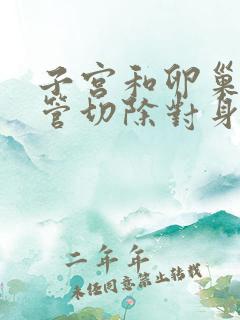 子宮和卵巢
管切除對身
二年年
未經同意禁止转载